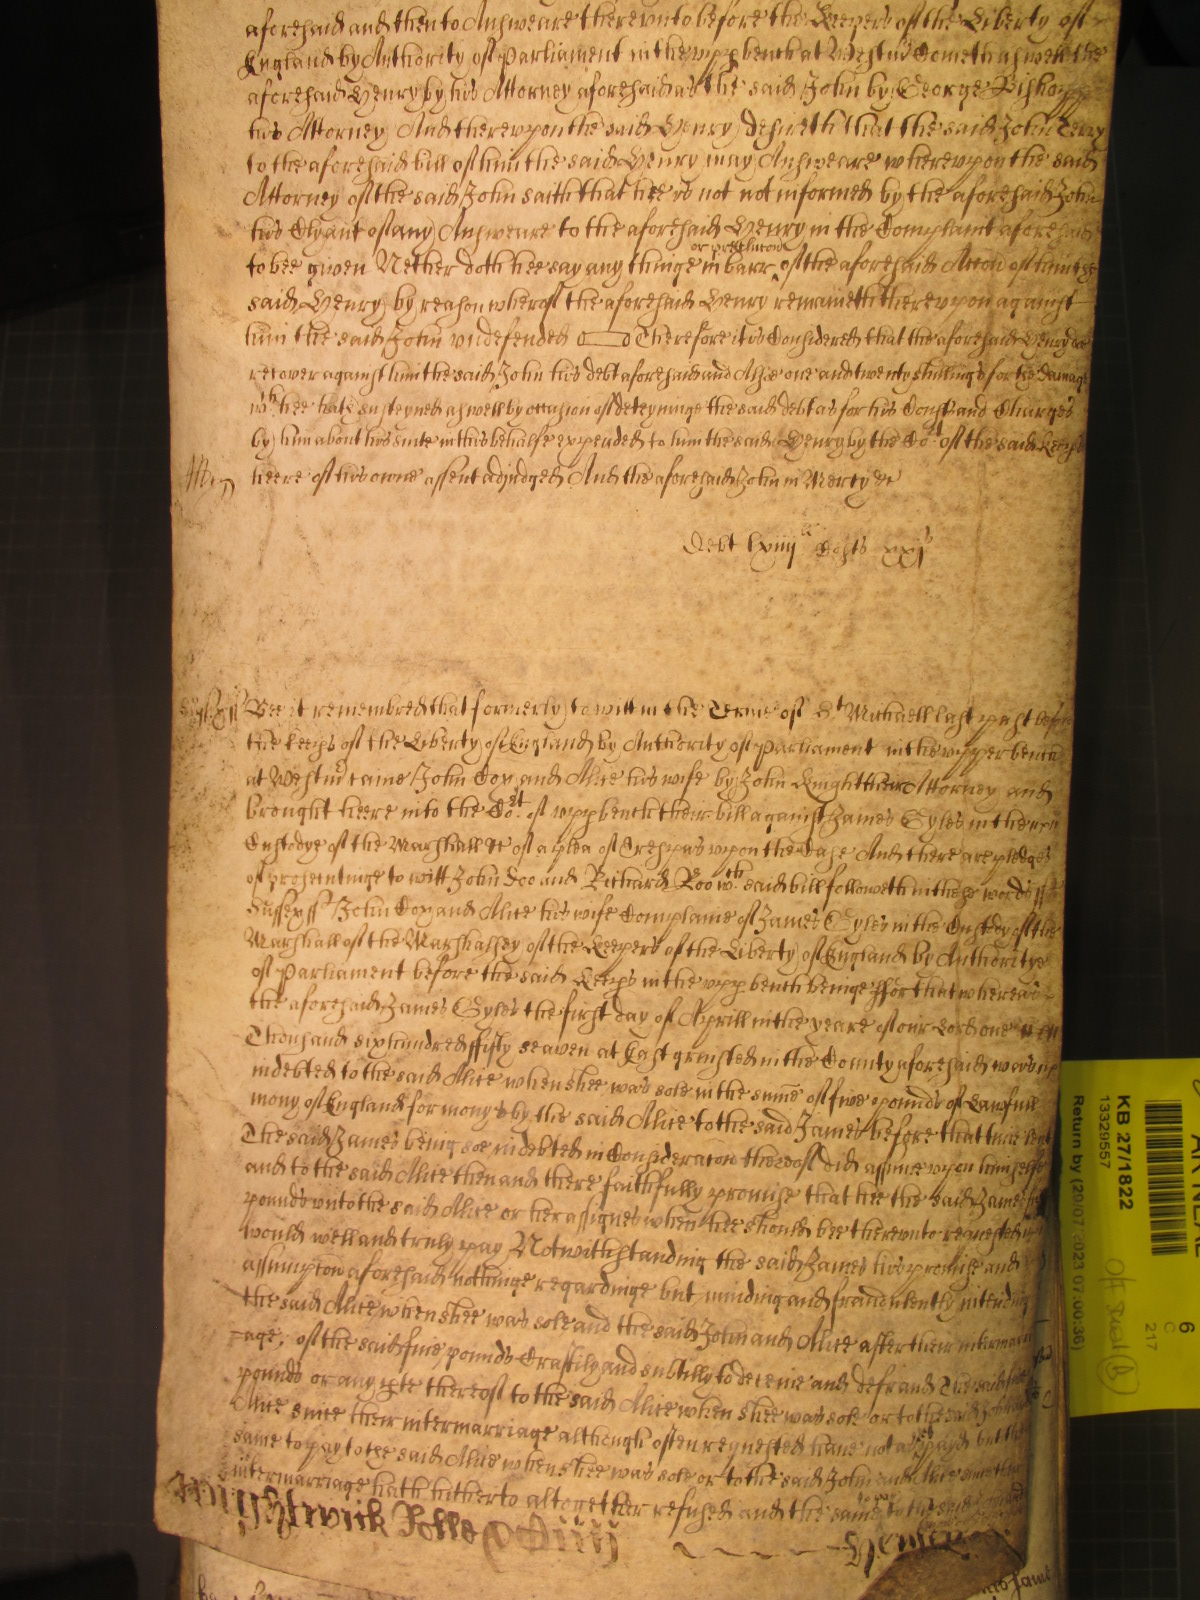 aforesaid and then to Answeare therevnto before the Keepers of the Liberty of
England by Authority of Parliament in the vpp bench at Westm̃ Cometh aswell the
aforesaid Henry by his Attorney aforesaid as the said John by George Bishopp
his Attorney And therevpon the said Henry desireth that the said John Terry
to the aforesaid bill of him the said Henry may Answeare wherevpon the said
Attorney of the said John saith that hee ys not not informed by the aforesaid John
his Clyant of any Answeare to the aforesaid Henry in the Complaint aforesaid
to bee given Nether doth hee say any thinge in barr or preclusion of the aforesaid Accon of him the
said Henry by reason whereof the aforesaid Henry remaineth therevpon against
him the said John vndefended Therefore it is Considered that the aforesaid Henry doe
recover against him the said John his debt aforesaid and Alsoe one and twenty shillings for the damage
wch hee hath susteyned aswell by occasion of deteyninge the said debt as for his Costs and Charges
by him about his suite in this behalfe expended to him the said Henry by the Cort of the said Keeps
heere of his owne assent adjudged And the aforesaid John in Mercy &c
Debt lxiiij li Costs xxj s
Bee it remembred that formerly to witt in the Terme of St Michaell last past before
the keeps of the Liberty of England by Authority of Parliament in the vpper bench
at Westm̃ came John Cox and Alice his wife by John Knight their Attorney and
brought heere into the Cort of vpp bench their bill against James Gyles in the
Custodye of the Marshall &c of a plea of Trespas vpon the Case And there are pledges
of prosecutinge to witt John Doo and Richard Roo wch said bill followeth in these words ss
Sussex ss John Cox and Alice his wife Complaine of James Gyles in the Custdy of the
Marshall of the Marshalsey of the Keepers of the Liberty of England by Authoritye
of Parliament before the said Keeps in the vpp bench beinge ffor that whereas
the aforesaid James Gyles the first day of Aprill in the yeare of our Lord one
Thousand six hundred ffifty seaven at East grinsted in the County aforesaid was
indebted to the said Alice when shee was sole in the sum̃e of five pounds of Lawfull
mony of England for monys by the said Alice to the said James before that time lent
The said James being soe indebted in Consideracon thereof did assume vpon himselfe
and to the said Alice then and there faithfully promise that hee the said James
pounds vnto the said Alice or her assignes when hee should bee therevnto requested
would well and truly pay Notwithstanding the said James his promise and
assumption aforesaid nothinge regardinge but minding and fraudulently intending
the said Alice when shee was sole and the said John and Alice after their intermarri
age, of the said five pounds Craftily and subtilly to deceive and defraud The said five
pounds or any pte thereof to the said Alice when shee was sole or to the said John and
Alice since their intermarriage although often requested have not as yet payd but the
same to pay to the said Alice when shee was sole or to the said John and Alice since their
intermarriage hath hitherto altogether refused and the same to pay to the said
Wrightwick Rolle
KB 27/1822
13329557
Return by (20/07/2023 07:00:36)
6
C
217